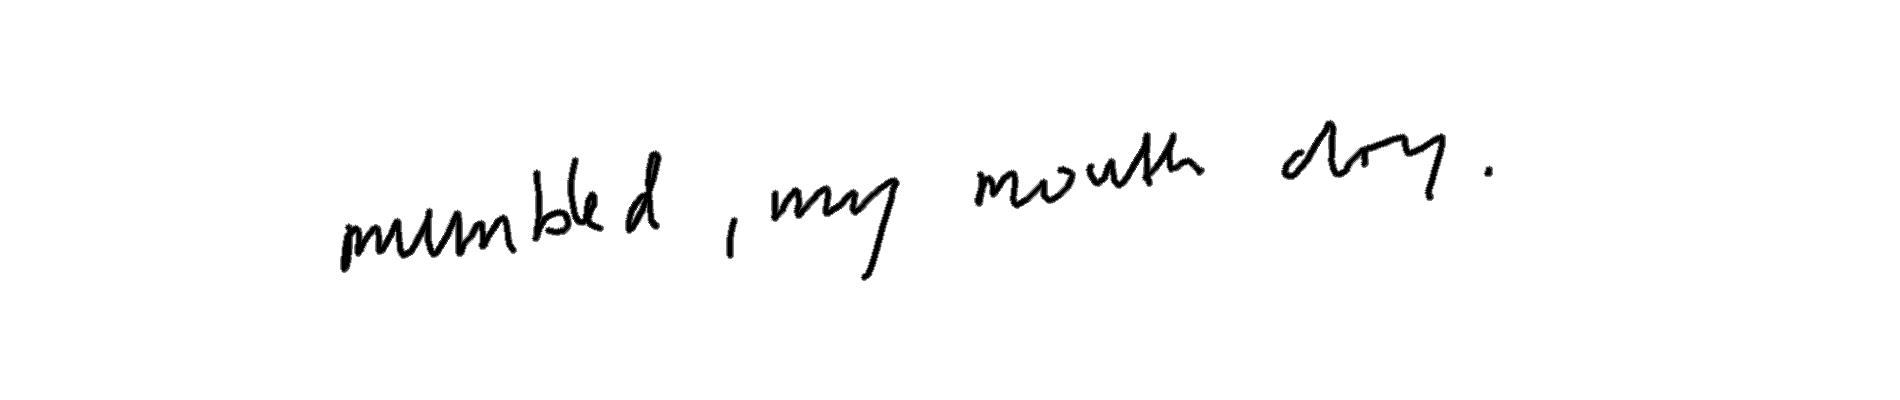 mumbled, my mouth dry.